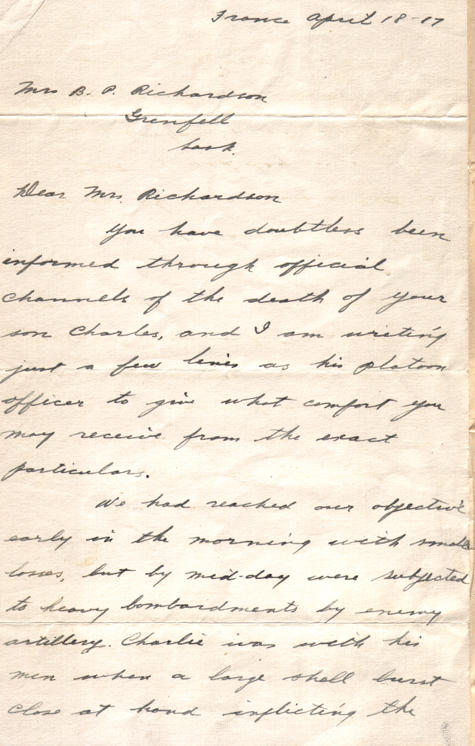 France April 18-17
Mrs B. P. Richardson
Grenfell
Sask.
Dear Mrs. Richardson
You have doubtless been
informed through official
channels of the death of your
son Charles, and I am writing
just a few lines as his platoon
officer to give what comfort you
may receive from the exact
particulars.
We had reached our objective
early in the morning with small
losses, but by mid-day were subjected
to heavy bombardments by enemy
artillery. Charlie was with his
men when a large shell burst
close at hand inflicting the